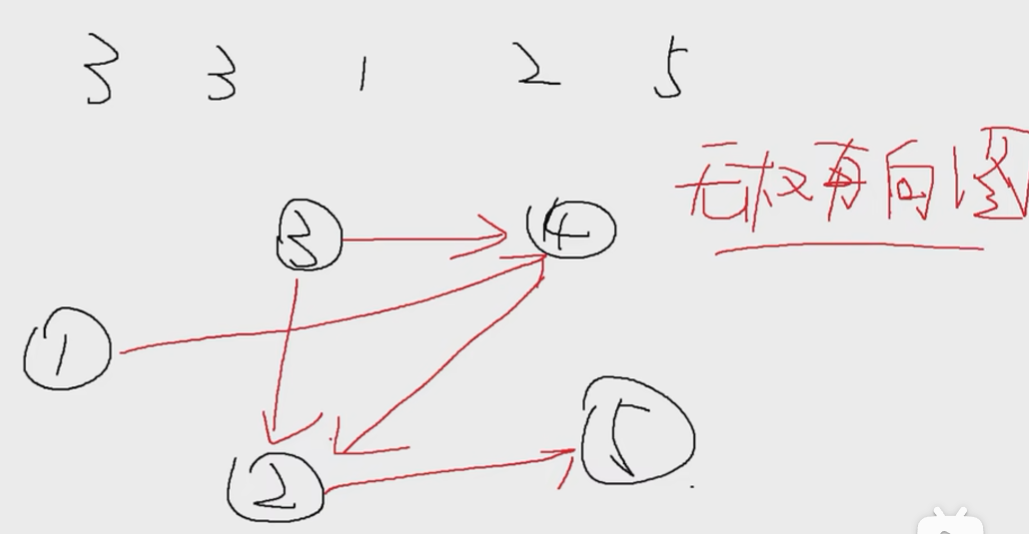 3 3 1 2 5
无权有向图
3 4
1
5
2